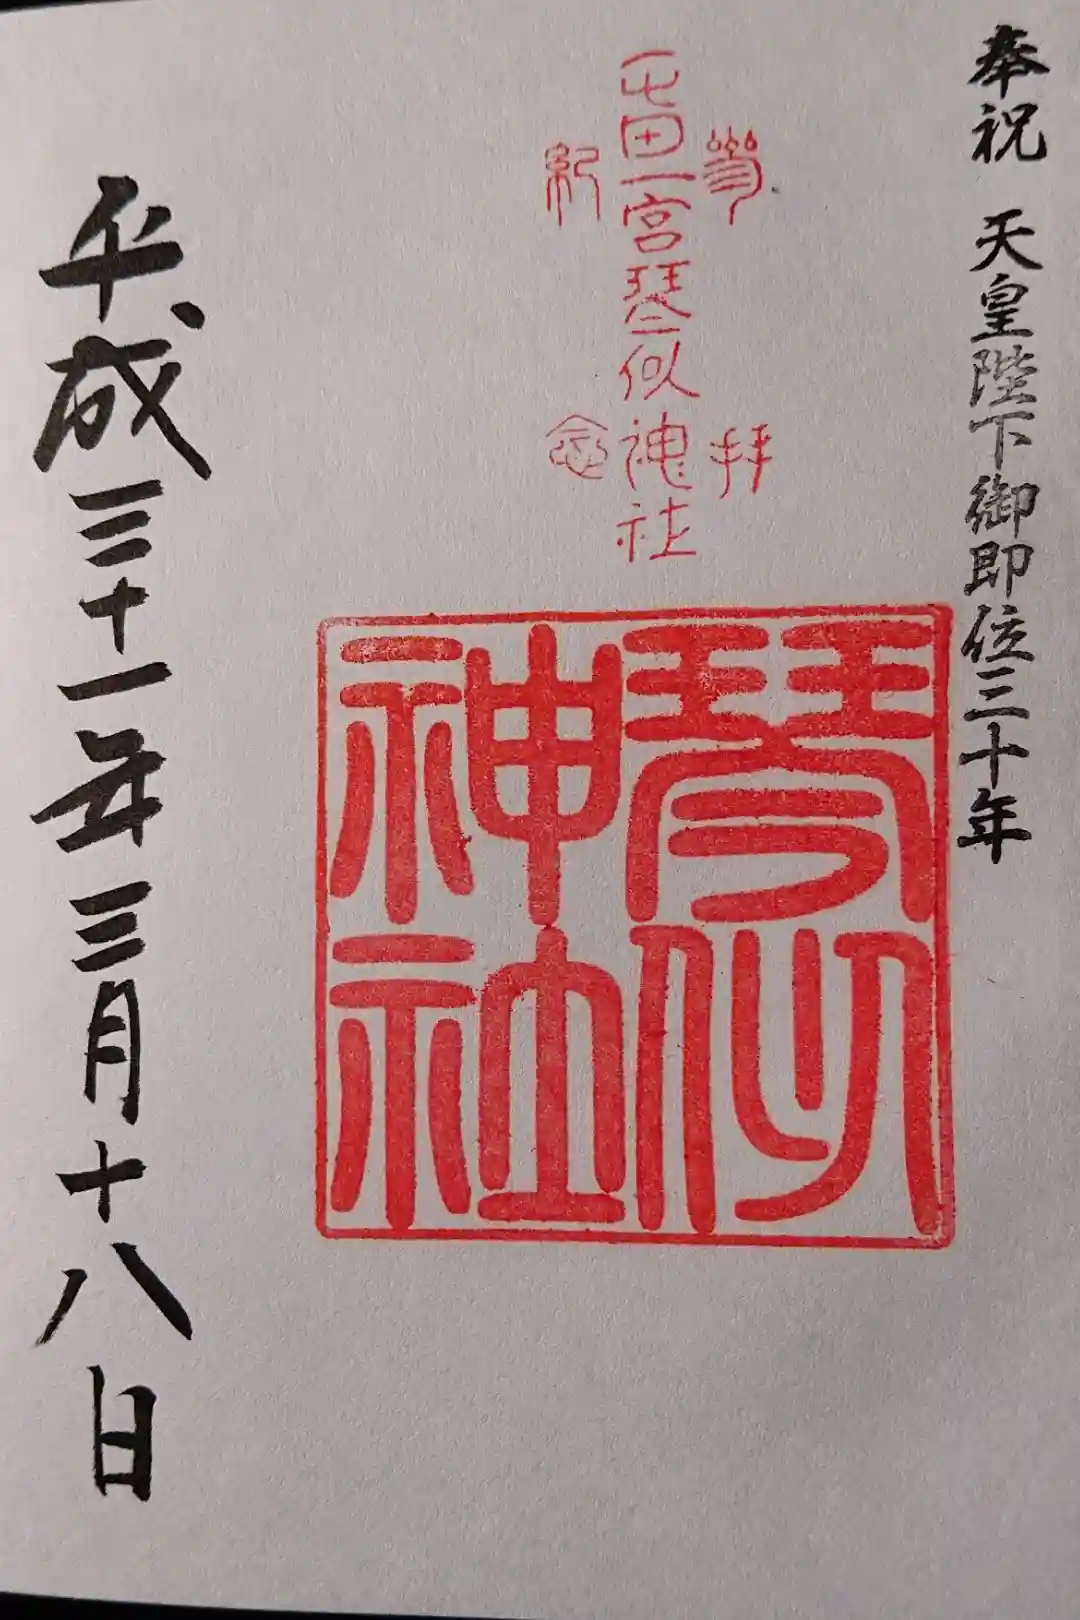 奉祝 天皇陛下御即位三十年
参拝
屯田一宮琴似神社
紀念
琴似
神社
平成三十一年三月十八日